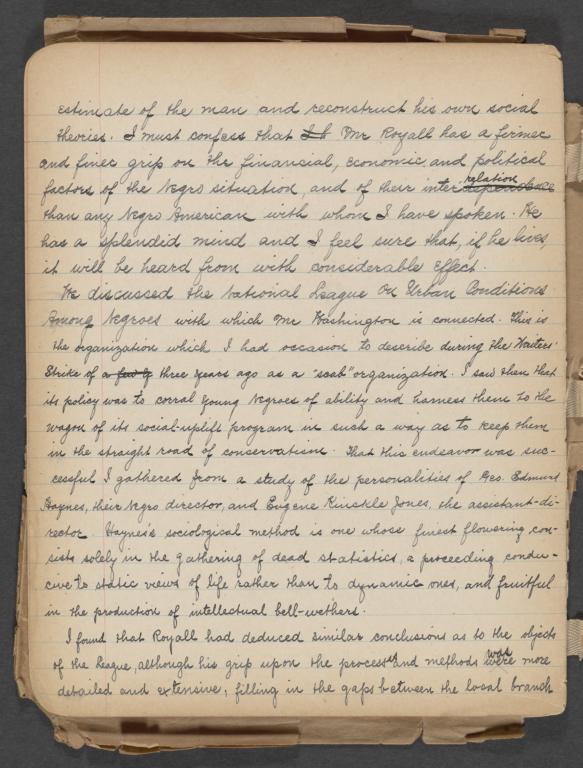 estimate of the man and reconstruct his own social
theories. I must confess that Mr Royall has a firmer
and finer grip on the financial, economic and political
factors of the Negro situation, and of their interrelation
than any Negro American with whom I have spoken. He
has a splendid mind and I feel sure that, if he lives,
it will be heard from with considerable effect.
We discussed the National League On Urban Conditions
Among Negroes with which Mr Washington is connected. This is
the organization which I had occasion to describe during the Waiters'
Strike of a few three years ago as a "scab" organization. I saw then that
its policy was to corral young Negroes of ability and harness them to the
wagon of its social-uplift program in such a way as to keep them
in the straight road of conservatism. That this endeavor was suc-
cessful I gathered from a study of the personalities of Geo. Edmund
Haynes, their Negro director, and Eugene Kinckle Jones, the assistant-di-
rector. Haynes's sociological method is one whose finest flowering con-
sists solely in the gathering of dead statistics, a proceeding condu-
cive to static views of life rather than to dynamic ones, and fruitful
in the production of intellectual bell-wethers.
I found that Royall had deduced similar conclusions as to the objects
of the League, although his grip upon the processes and methods was more
detailed and extensive, filling in the gaps between the local branch